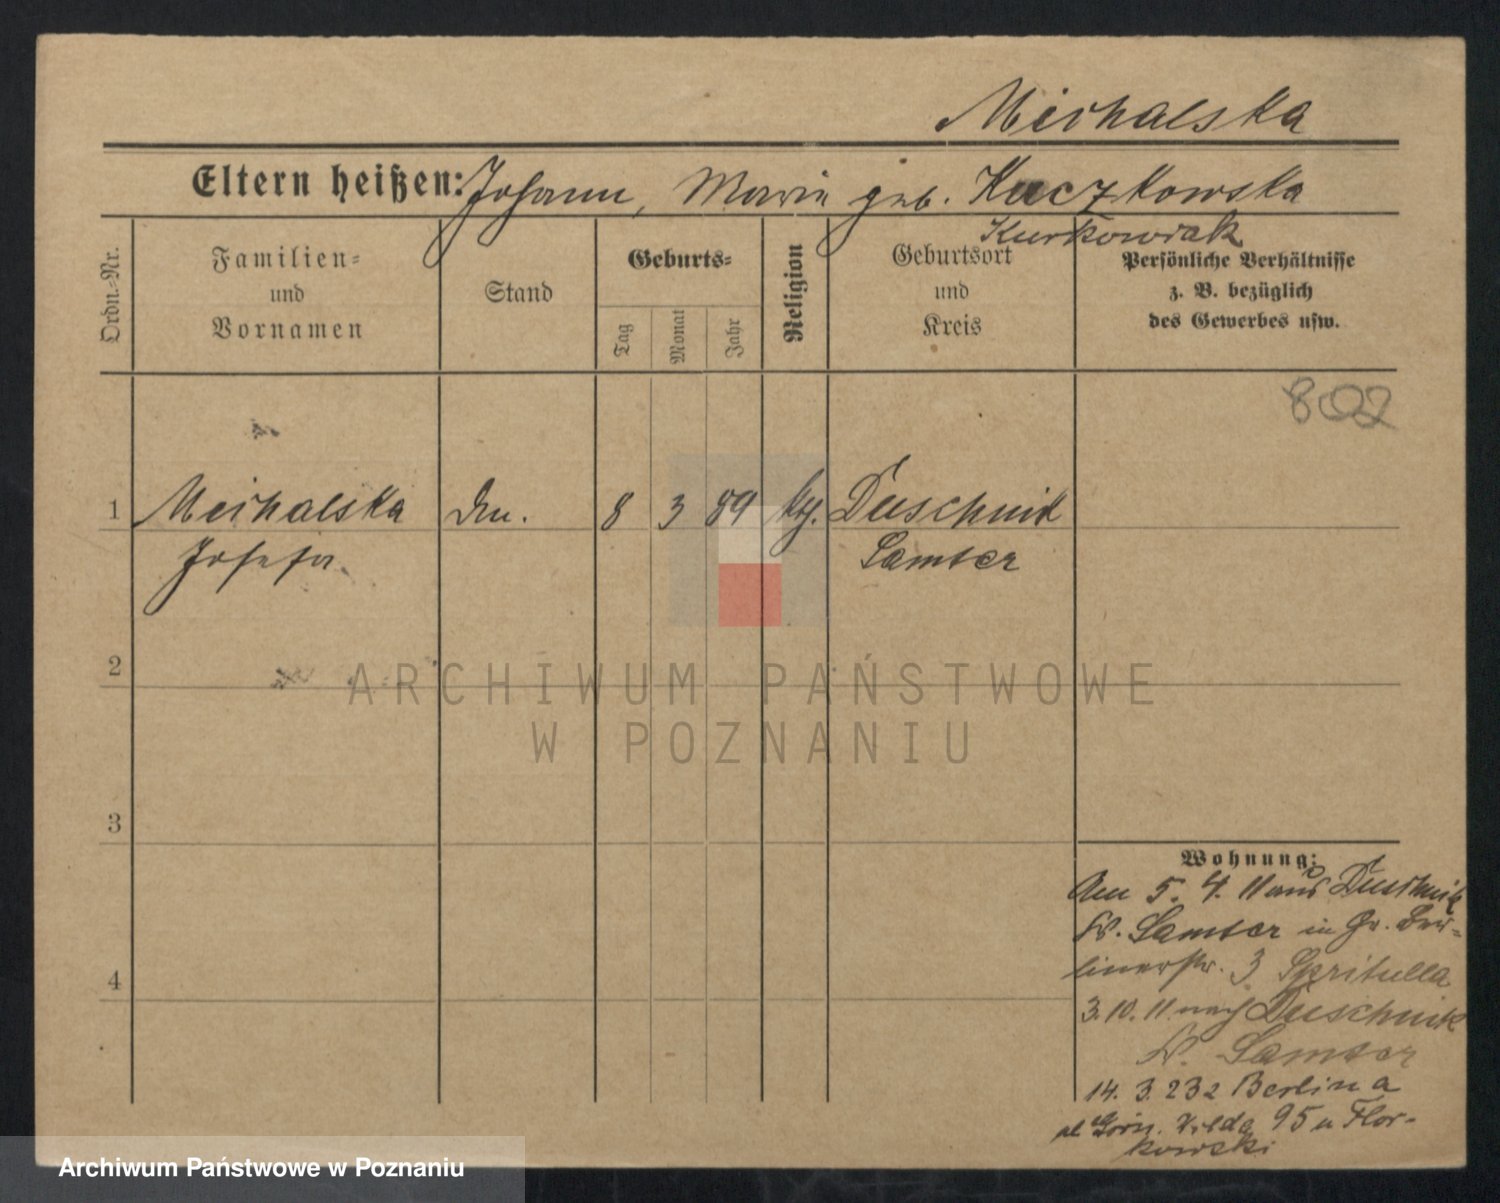 Michalska
Eltern heißen: Johann, Marie geb. Kuczkowska
Kurkowiak
Ordn.-Nr.
Familien-
und
Vornamen
Stand
Geburts-
Tag
Monat
Jahr
Religion
Geburtsort
und
Kreis
Persönliche Verhältnisse
z. B. bezüglich
des Gewerbes usw.
802
1 Michalska 8 3 89 Duschnik
Josefa Samter
2
3
4
Wohnung:
Am 5. 4. 11 aus Duschnik
Kr. Samter in Gr. Ber-
linerstr. 3 Spritulla
3. 10. 11 nach Duschnik
Kr. Samter
14. 3. 23 z Berlina
Górn. Wilda 95 u Flor-
kowski
ARCHIWUM PAŃSTWOWE
W POZNANIU
Archiwum Państwowe w Poznaniu